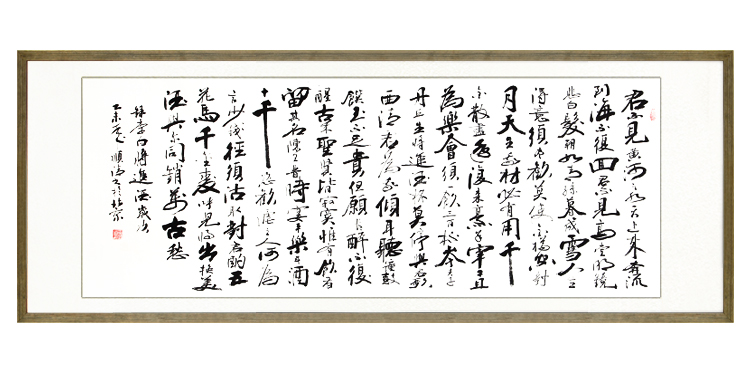 君不見黄河之水天上来奔流
到海不復回君不見高堂明鏡
悲白髮朝如青絲暮成雪人生
得意須尽歡莫使金樽空對
月天生我材必有用千
金散盡還復来烹羊宰牛且
為樂會須一飲三百杯岑夫子
丹丘生將進酒杯莫停與君歌
曲請君為我傾耳聽鐘鼓
饌玉不足貴但願長醉不復
醒古来聖賢皆寂寞惟有飲者
留其名陳王昔時宴平樂斗酒
十千恣歡謔主人何為
言少錢徑須沽取對君酌五
花馬千金裘呼兒將出換美
酒與尔同銷萬古愁
録李白將進酒歲次
乙未順於北京